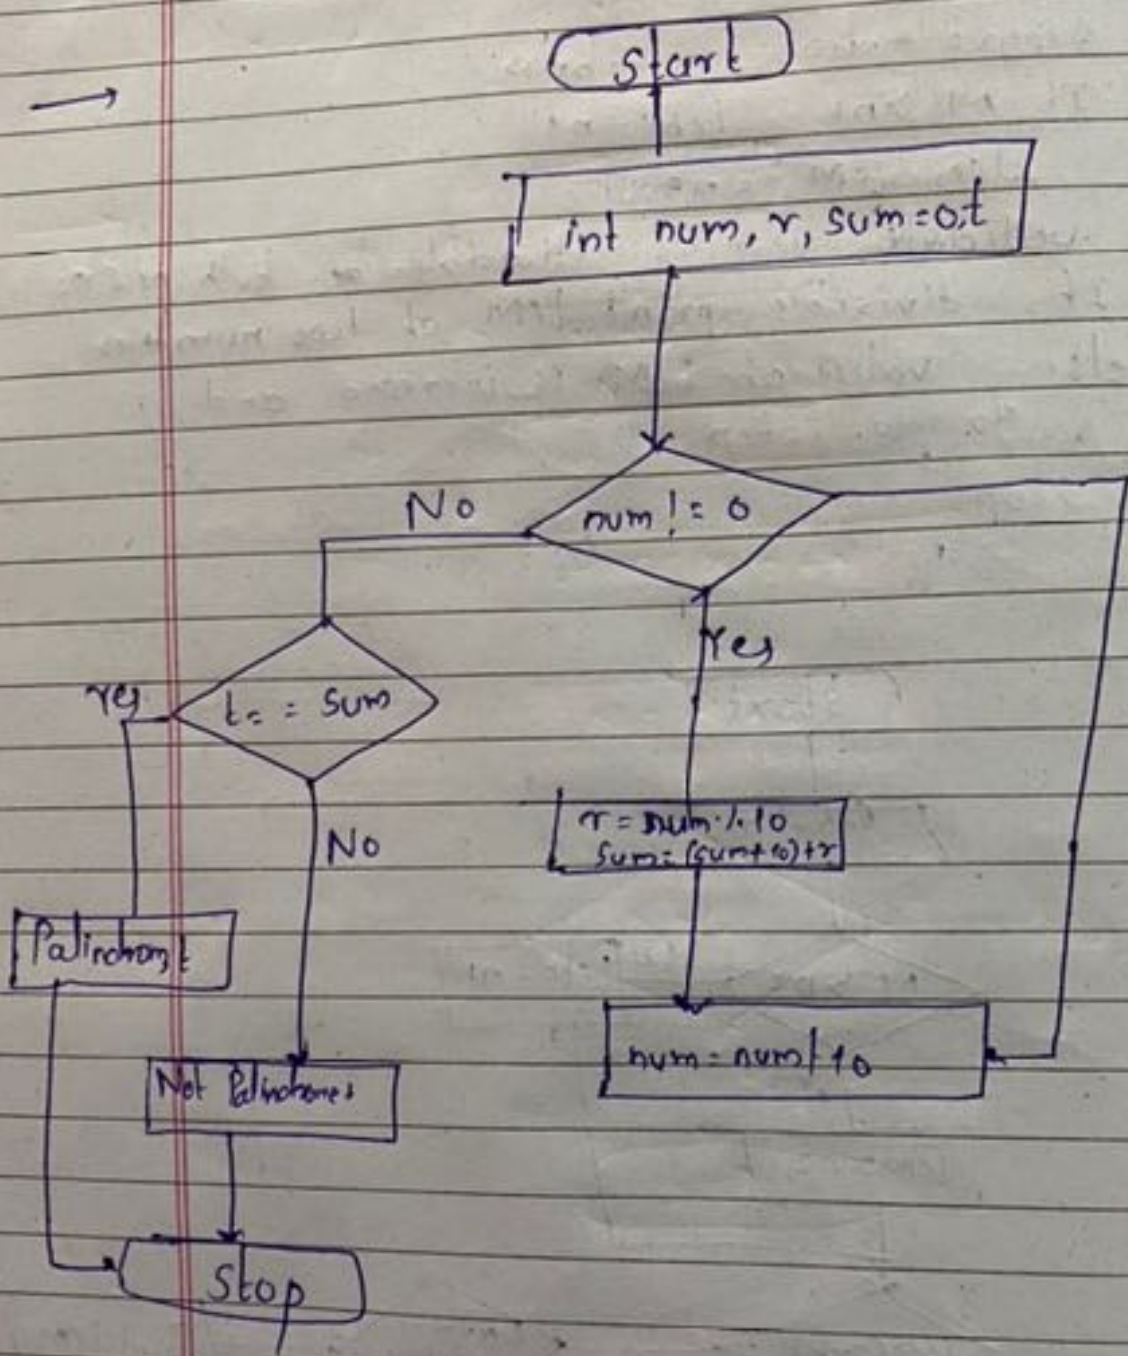 Start
int num, r, sum=0,t
num != 0
No
Yes
t = = sum
Yes
No
r = num % 10
sum = (sum+10)+r
Palindrom,t
num = num / 10
Not Palindrome,
Stop